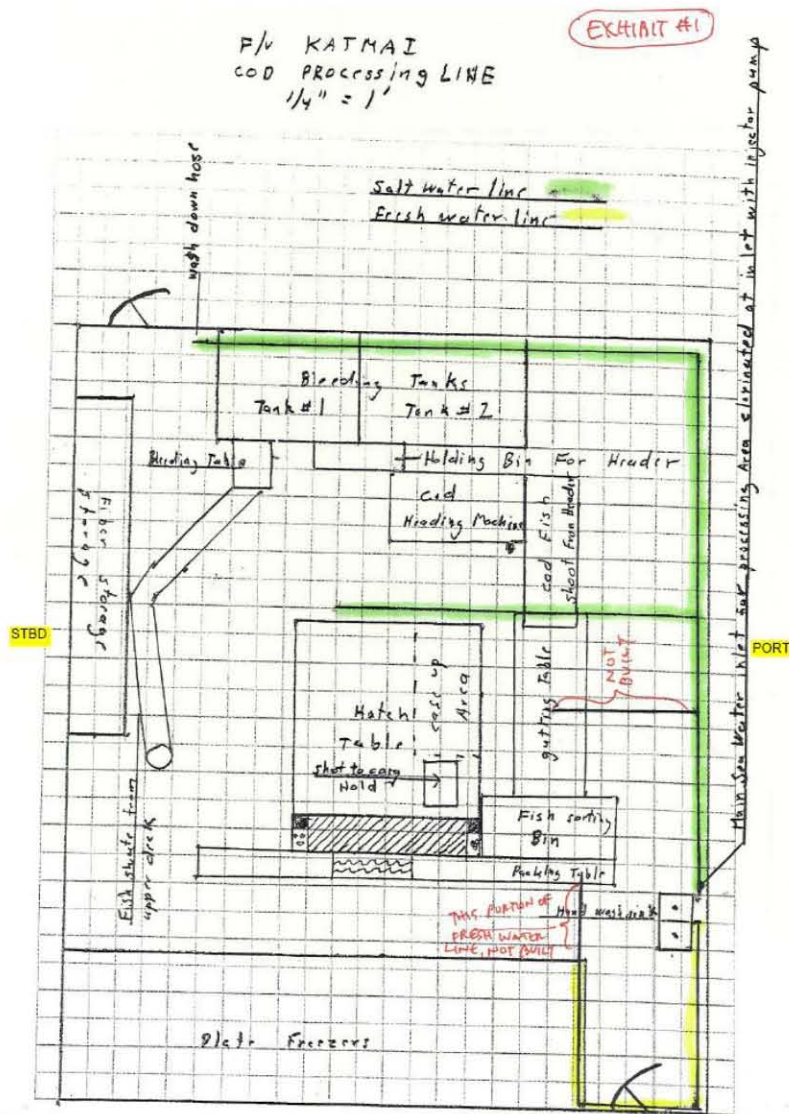 EXHIBIT #1
F/V KATMAI
COD PROCESSING LINE
1/4" = 1'
Salt water line
Fresh water line
wash down hose
Main Sea Water inlet for processing Area eliminated at inlet with injector pump
Bleeding Tanks
Tank #1
Tank # 2
Bleeding Table
Holding Bin For Header
Cod
Heading Machine
Cod Fish
shoot From Header
Fiber storage
storage
STBD
PORT
NOT
BUILT
gutting Table
Hatch
Table
case up
Area
shot to case
Hold
Fish sorting
Bin
Packing Table
Fish shute from
upper deck
THIS PORTION OF
FRESH WATER
LINE, NOT BUILT
Hand wash sink
Plate Freezers